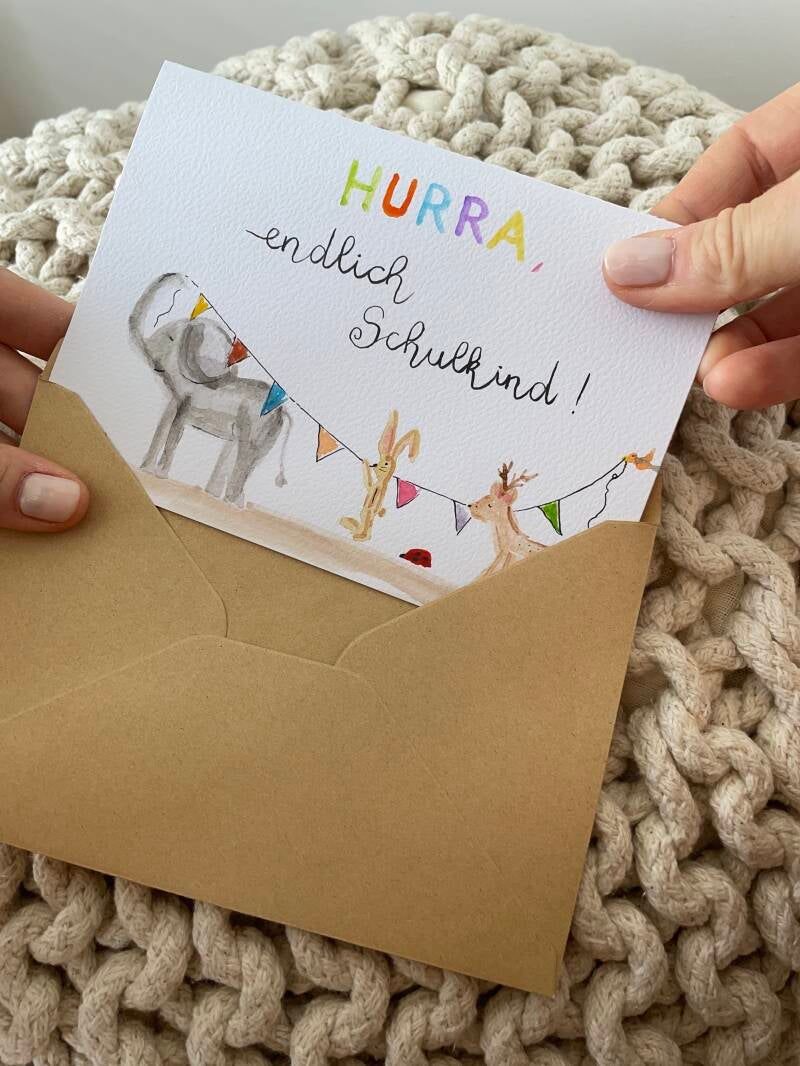 HURRA,
endlich
Schulkind!